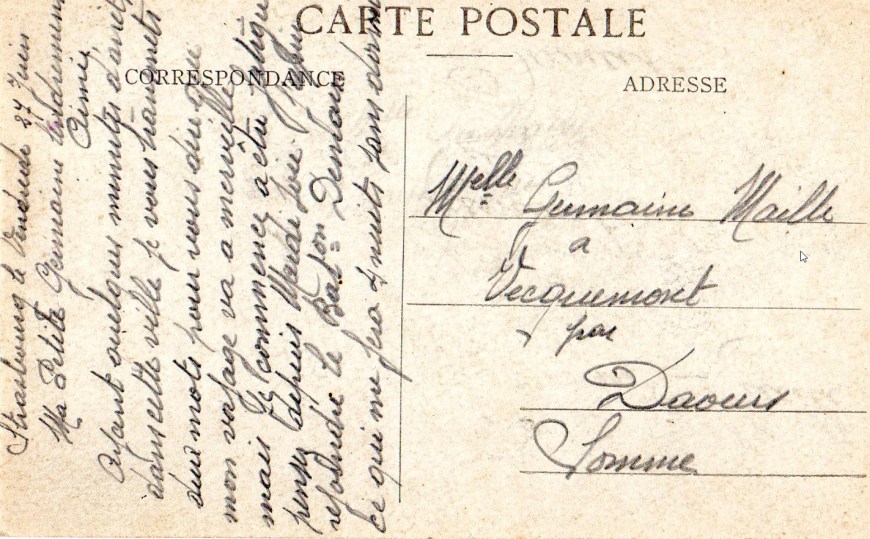 CARTE POSTALE
CORRESPONDANCE
ADRESSE
Strasbourg le Vendredi 27 Juin
Ma Petite Germaine
Aimée
Ayant quelques minutes d'arrêt
dans cette ville je vous transmets
deux mots pour vous dire que
mon voyage va a merveille
mais je commence a être fatigué
pensez depuis Mardi soir
rejoindre le Bat=on Demain
ce qui me fera 4 nuits sans dormir
Melle Germaine Maille
a
Vecquemont
par
Daours
Somme